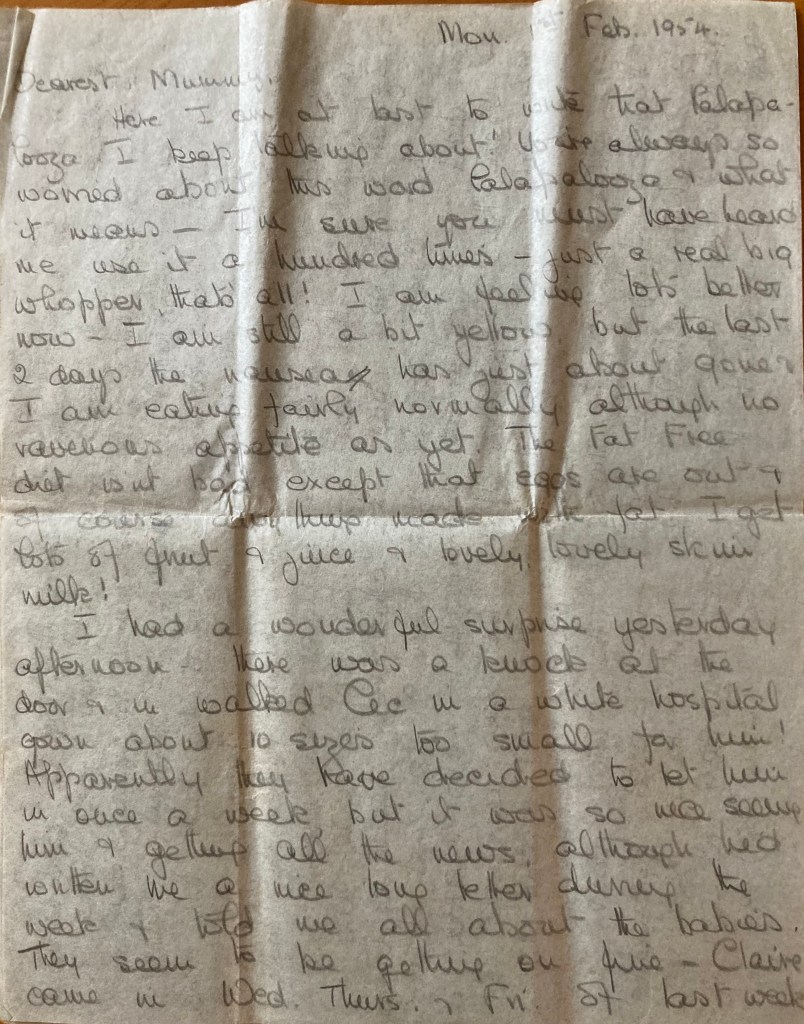 Mon. 1st Feb. 1954.
Dearest Mummy,
Here I am at last to write that Palapa-
looza I keep talking about! You're always so
worried about this word Palapalooza & what
it means – I'm sure you must have heard
me use it a hundred times – just a real big
whopper, that's all! I am feeling lots better
now – I am still a bit yellow, but the last
2 days the nausea has just about gone &
I am eating fairly normally although no
ravenous appetite as yet. The Fat Free
diet isnt bad except that eggs are out &
of course anything made with fat. I get
lots of fruit & juice & lovely, lovely skim
milk!
I had a wonderful surprise yesterday
afternoon – there was a knock at the
door & in walked Cec in a white hospital
gown about 10 sizes too small for him!
Apparently they have decided to let him
in once a week, but it was so nice seeing
him & getting all the news, although he'd
written me a nice long letter during the
week & told me all about the babies.
They seem to be getting on fine – Claire
came in Wed. Thurs. & Fri. of last week